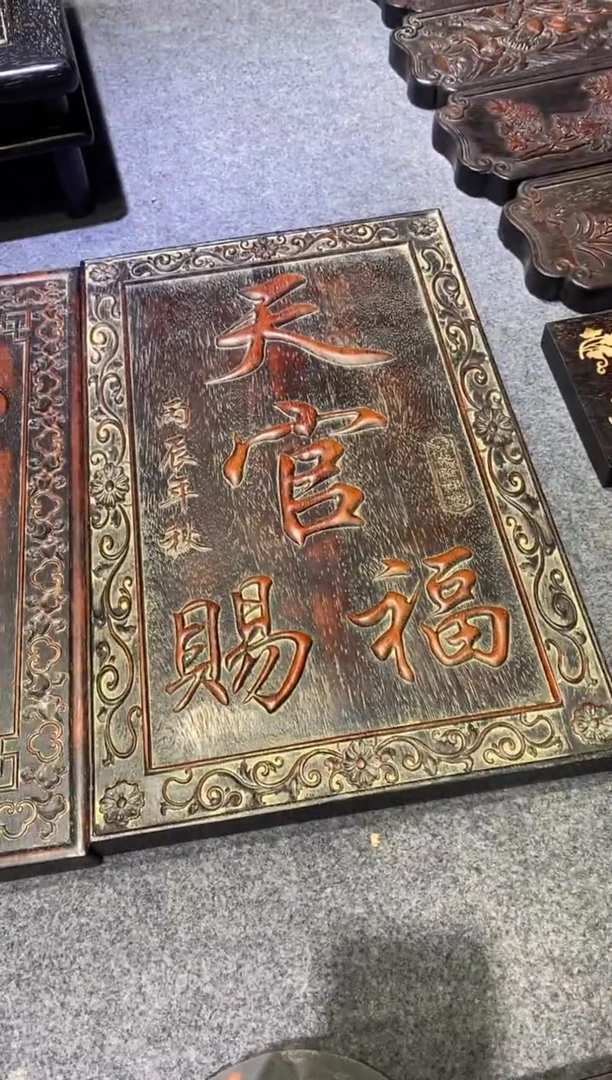 天
官
賜福
丙辰年秋